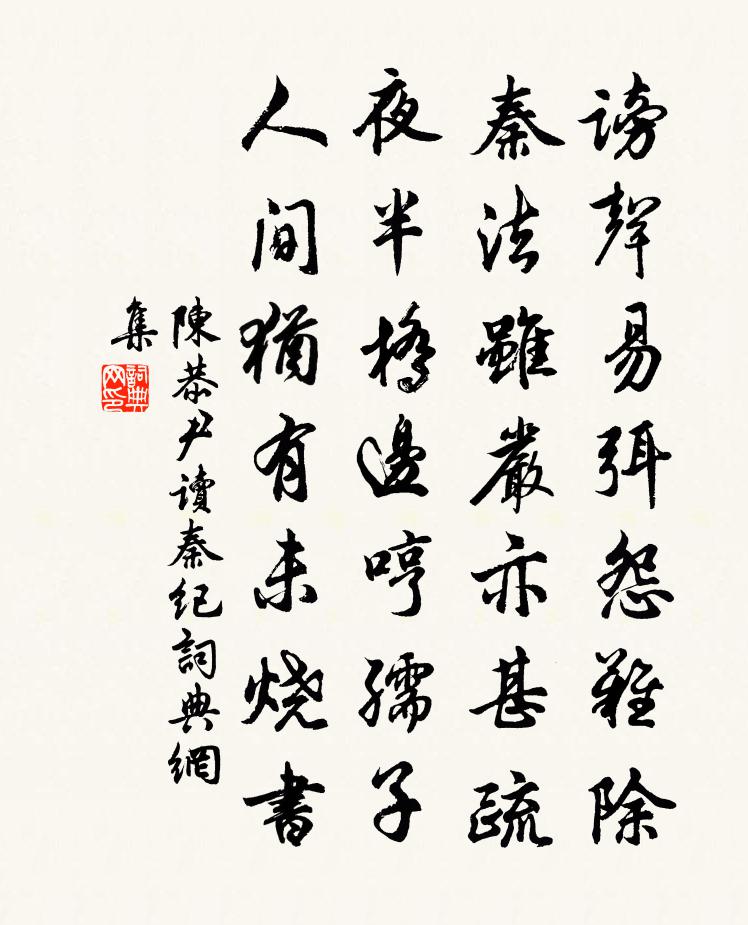 謗聲易弭怨難除
秦法雖嚴亦甚疏
夜半橋邊哼孺子
人間猶有未烧書
陳恭尹讀秦紀詞典網
集
詞典
网印